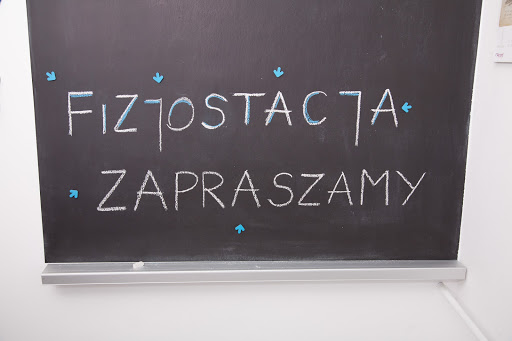 FIZJOSTACJA
ZAPRASZAMY